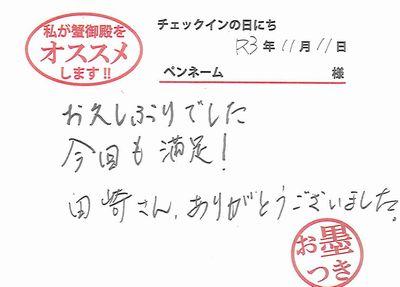 私が蟹御殿を
オススメ
します!!
チェックインの日にち
R3年11月11日
ペンネーム 様
お久しぶりでした
今回も満足!
田崎さん、ありがとうございました。
お墨
つき